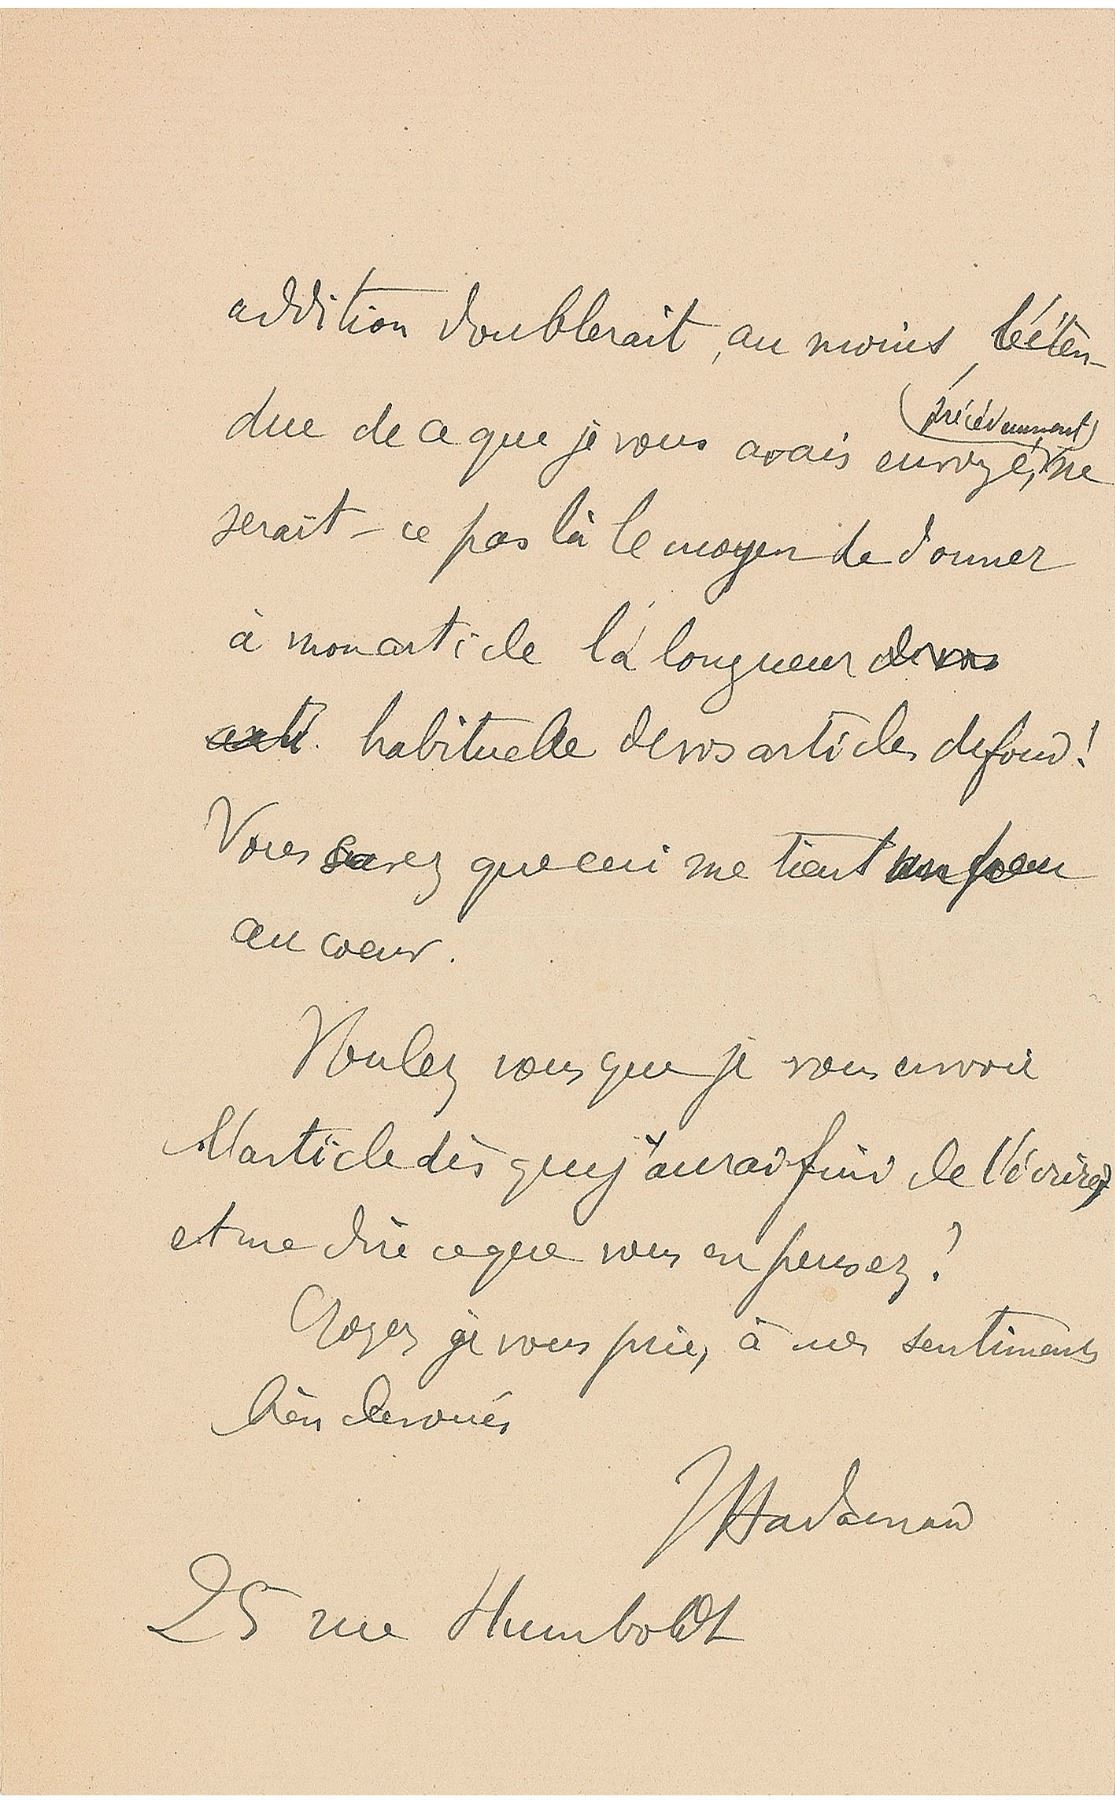 addition doublerait, au moins, l'éten-
due de ce que je vous avais envoyé, (précédemment) ne
serait-ce pas là le moyen de donner
à mon article la longueur de vos
arti. habituelle de vos articles de fond!
Vous savez que ceci me tient un peu
au coeur.
Voulez vous que je vous envoie
l'article dès que j'aurai fini de l'écrire,
et me dire ce que vous en pensez?
Croyez je vous prie, à mes sentiments
bien dévoués
J Hadamard
25 rue Humboldt